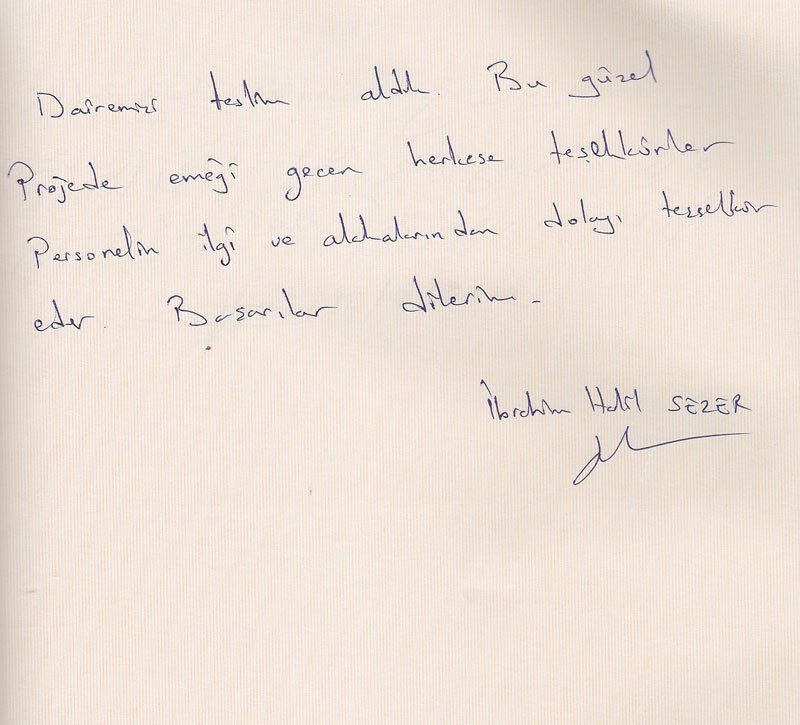 Dairemizi teslim aldık. Bu güzel
Projede emeği geçen herkese teşekkürler
Personelin ilgi ve alakalarından dolayı tesselkür
eder. Başarılar dilerim.
İbrahim Halil SEZER